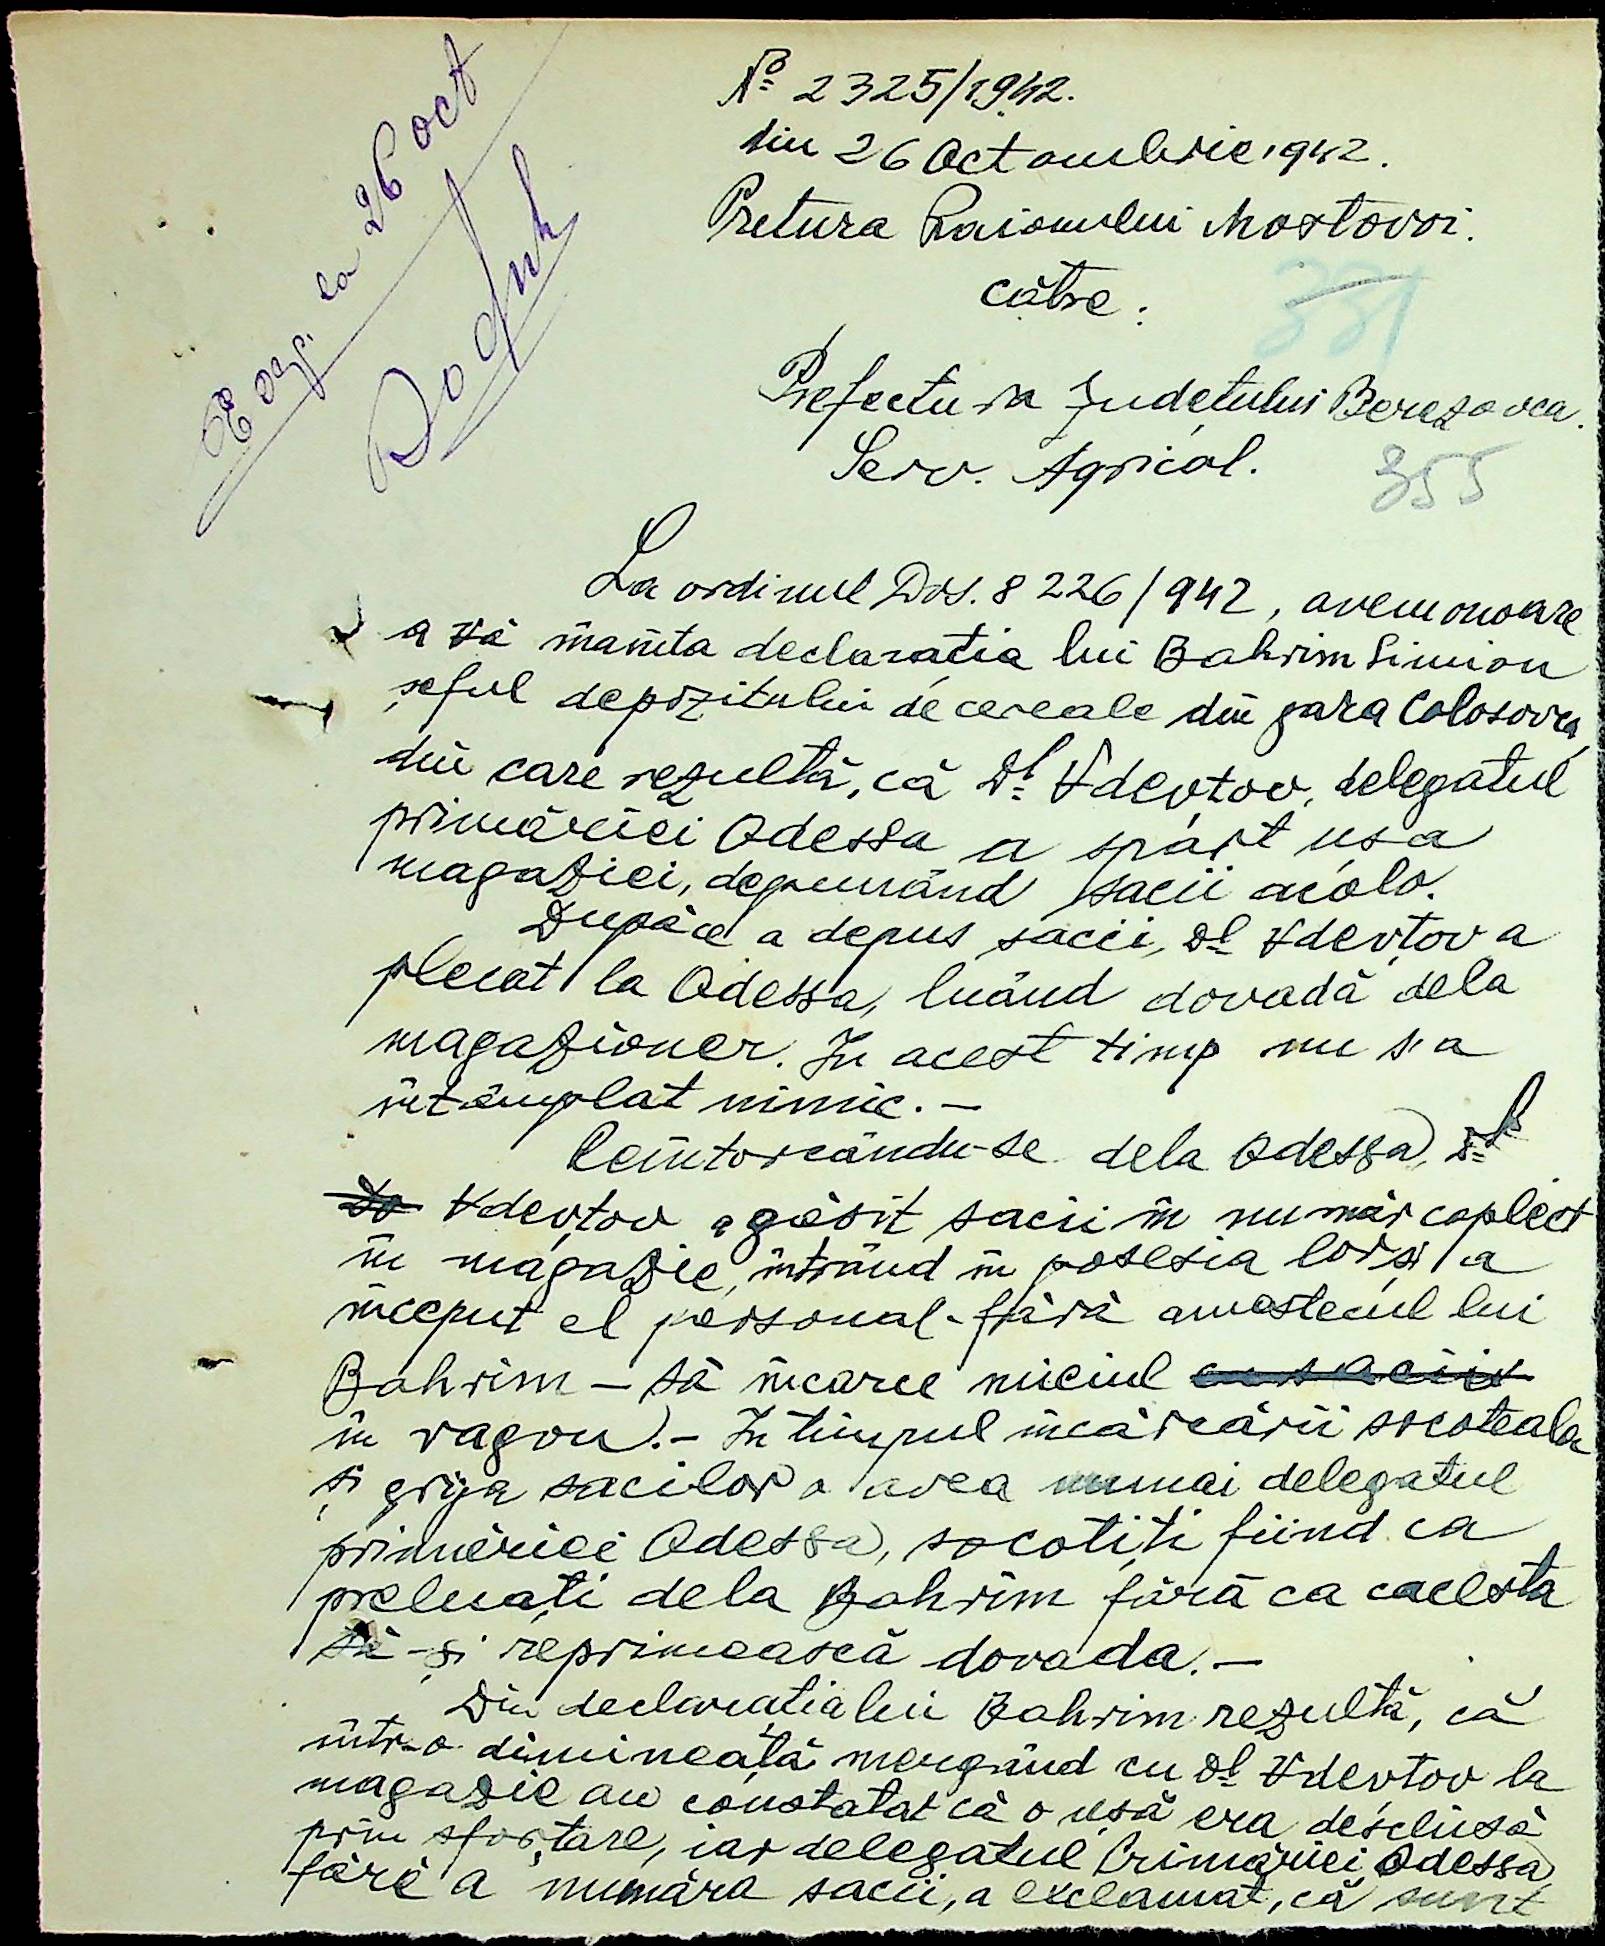 Nº 2325/1942.
din 26 Octombrie 1942.
Pretura Raionului Mostovoi.
către:
331
Prefectura Județului Berezovca.
Serv. Agricol.
355
la 26 oct
La ordinul Dvs. 8226/942, avem onoare
a vă înainta declarația lui Bahrim Simion
șeful depozitului de cereale din gara Colosovca,
din care rezultă, că Dl Vdevtov, delegatul
primăriei Odessa a spart ușa
magaziei, depunând sacii acolo.
După ce a depus sacii, Dl Vdevtov a
plecat la Odessa, luând dovadă dela
magazioner. In acest timp nu s'a
întâmplat nimic.-
Reîntorcându-se dela Odessa, Dl
Vdevtov a găsit sacii în număr coplect
în magazie, intrând în posesia lor și a
început el personal - fără amestecul lui
Bahrim - să încarce meiul cu sacii
în vagon.- In timpul încărcării socoteala
și grija sacilor o avea numai delegatul
primăriei Odessa, socotiți fiind ca
preluați dela Bahrim fără ca cacesta
să-și reprimească dovada.-
Din declarația lui Bahrim rezultă, că
într-o dimineață mergând cu Dl Vdevtov la
magazie au constatat că o ușă era desclisă
prin sforțare, iar delegatul Primăriei Odessa
fără a număra sacii, a exclamat, că sunt